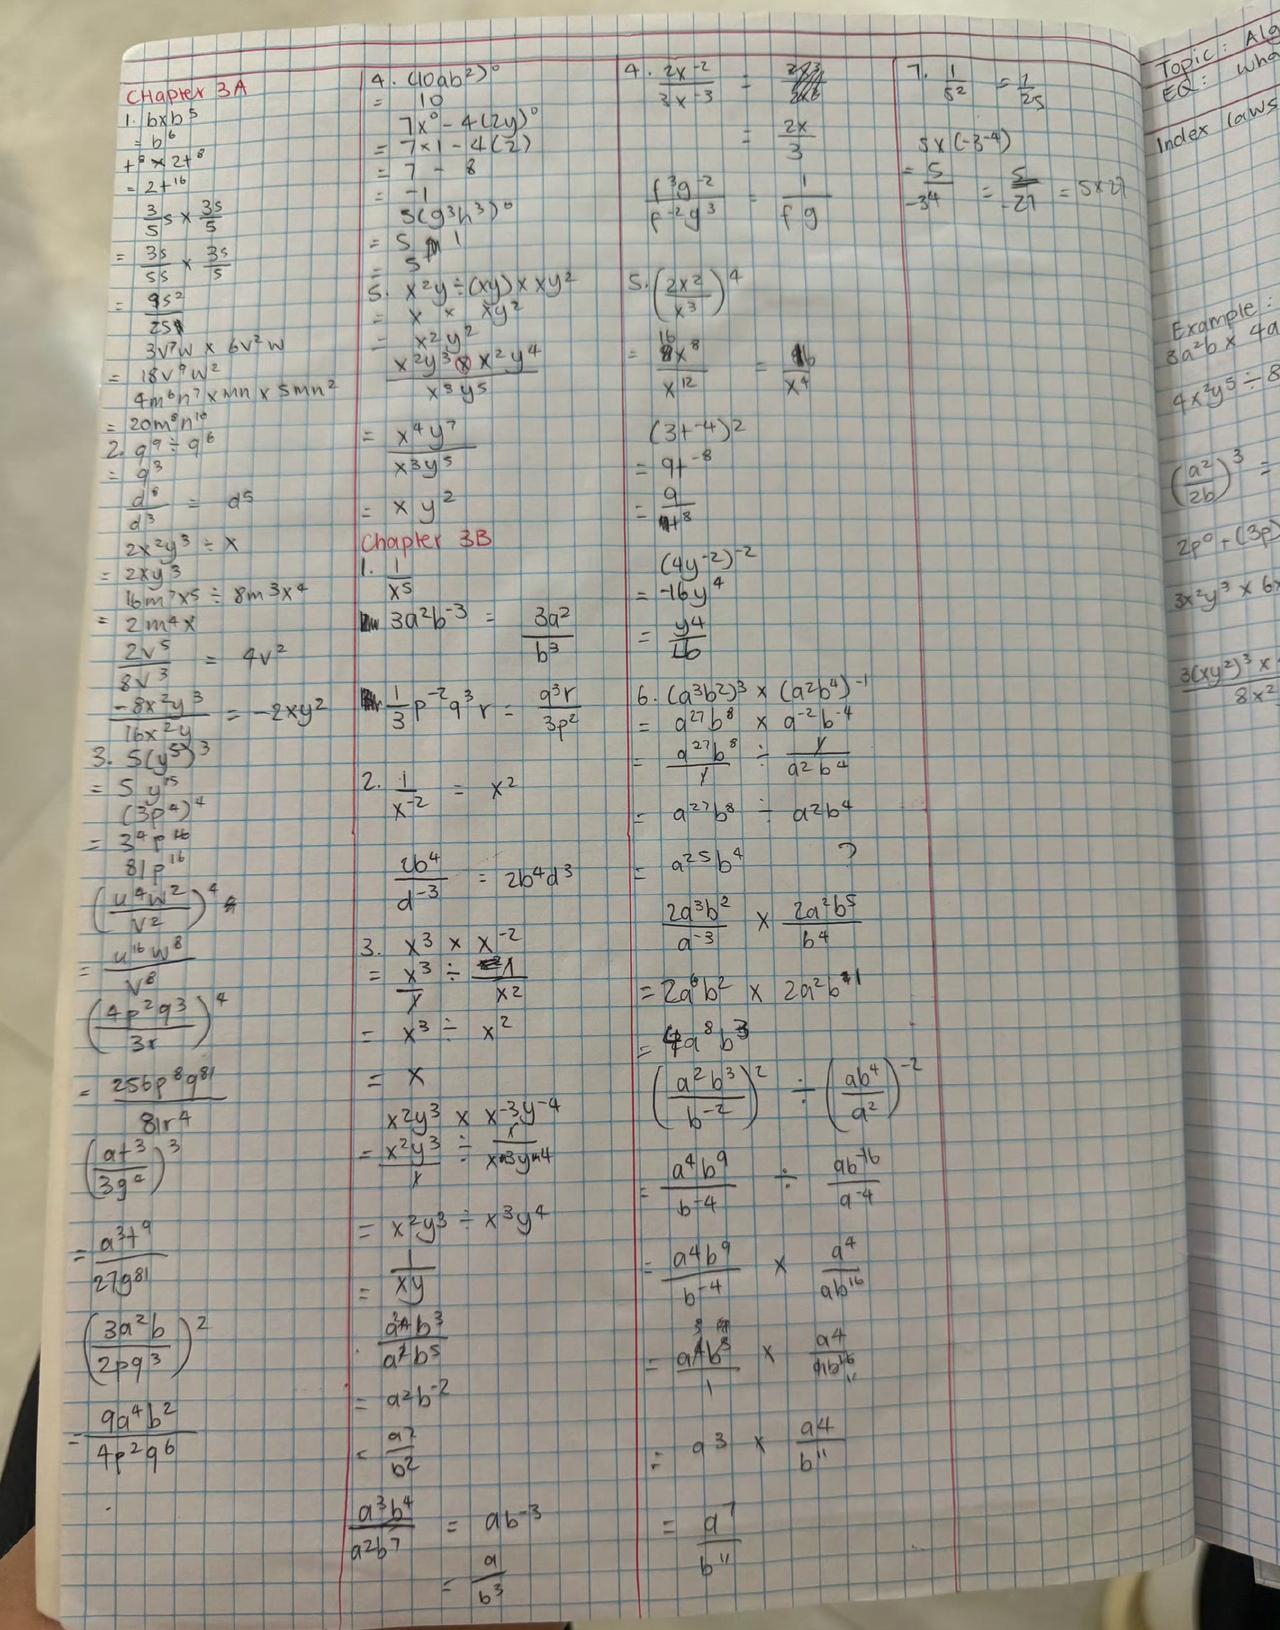 Chapter 3A
1. b×b⁵
= b⁶
t⁸ × 2t⁸
= 2t¹⁶
3/5 s × 3s/5
= 3s/5s × 3s/5
= 9s²/25
3v⁷w × 6v²w
= 18v⁹w²
4m⁶n⁷ × mn × 5mn²
= 20m⁸n¹⁰
2. q⁹ ÷ q⁶
= q³
d⁸/d³ = d⁵
2x²y³ ÷ x
= 2xy³
16m⁷x⁵ ÷ 8m³x⁴
= 2m⁴x
2v⁵/8v³ = 4v²
-8x²y³/16x²y = -2xy²
3. 5(y⁵)³
= 5y¹⁵
(3p⁴)⁴
= 3⁴p¹⁶
81p¹⁶
(u⁴w²/v²)⁴
= u¹⁶w⁸/v⁸
(4p²q³/3r)⁴
= 256p⁸q⁸¹/81r⁴
(at³/3g⁴)³
= a³t⁹/27g⁸¹
(3a²b/2pq³)²
= 9a⁴b²/4p²q⁶
4. (10ab²)⁰
= 10
7x⁰ - 4(2y)⁰
= 7×1 - 4(2)
= 7 - 8
= -1
5(g³h³)⁰
= 5 1
= 5
5. x²y ÷ (xy) × xy²
= x × xy²
= x²y²
x²y³ × x²y⁴/x³y⁵
= x⁴y⁷/x³y⁵
= xy²
Chapter 3B
1. 1/x⁵
3a²b⁻³ = 3a²/b³
1/3 p⁻²q³r = q³r/3p²
2. 1/x⁻² = x²
2b⁴/d⁻³ = 2b⁴d³
3. x³ × x⁻²
= x³/1 ÷ 1/x²
= x³ ÷ x²
= x
x²y³ × x⁻³y⁻⁴
= x²y³/1 ÷ 1/x³y⁴
= x²y³ ÷ x³y⁴
= 1/xy
a⁴b³/a²b⁵
= a²b⁻²
= a²/b²
a³b⁴/a²b⁷ = ab⁻³
= a/b³
4. 2x⁻²/3x⁻³ =
= 2x/3
f³g⁻²/f⁻²g³ = 1/fg
5. (2x²/x³)⁴
= 16x⁸/x¹² = 16/x⁴
(3t⁻⁴)²
= 9t⁻⁸
= 9/t⁸
(4y⁻²)⁻²
= -16y⁴
= y⁴/16
6. (a³b²)³ × (a²b⁴)⁻¹
= a²⁷b⁸ × a⁻²b⁻⁴
= a²⁷b⁸/1 ÷ 1/a²b⁴
= a²⁷b⁸ ÷ a²b⁴
= a²⁵b⁴ ?
2a³b²/a⁻³ × 2a²b⁵/b⁴
= 2a⁶b² × 2a²b¹
= 4a⁸b³
(a²b³/b⁻²)² ÷ (ab⁴/a²)⁻²
= a⁴b⁹/b⁻⁴ ÷ ab⁻¹⁶/a⁻⁴
= a⁴b⁹/b⁻⁴ × a⁴/ab¹⁶
= a⁴b⁵/1 × a⁴/ab¹⁶
= a³ × a⁴/b¹¹
= a⁷/b¹¹
7. 1/5² = 1/25
5×(-3⁻⁴)
= 5/-3⁴ = 5/-27 = 5×27
Topic: Alg
EQ: Wha
Index laws
Example:
3a²b × 4a
4x²y⁵ ÷ 8
(a²/2b)³ =
2p⁰ + (3p)
3x²y³ × 6x
3(xy²)³ ×
8x²